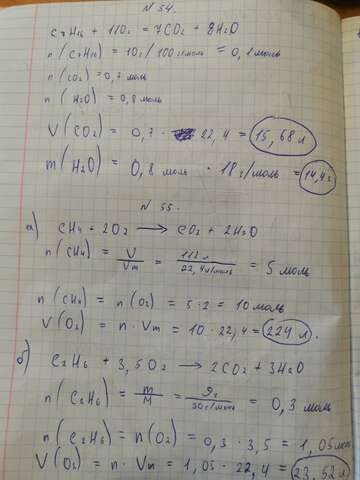 N 54.
C₇H₁₆ + 11O₂ = 7CO₂ + 8H₂O
n(C₇H₁₆) = 10г/100г/моль = 0,1моль
n(CO₂) = 0,7 моль
n(H₂O) = 0,8 моль
V(CO₂) = 0,7 · 22,4 = 15,68 л
m(H₂O) = 0,8 моль · 18г/моль = 14,4г
N 55.
а) CH₄ + 2O₂ → CO₂ + 2H₂O
n(CH₄) = V/Vm = 112 л/22,4л/моль = 5 моль
n(CH₄) = n(O₂) = 5·2 = 10 моль
V(O₂) = n·Vm = 10·22,4 = 224 л.
б) C₂H₆ + 3,5O₂ → 2CO₂ + 3H₂O
n(C₂H₆) = m/M = 9г/30г/моль = 0,3 моль
n(C₂H₆) = n(O₂) = 0,3·3,5 = 1,05моль
V(O₂) = n·Vm = 1,05·22,4 = 23,52л